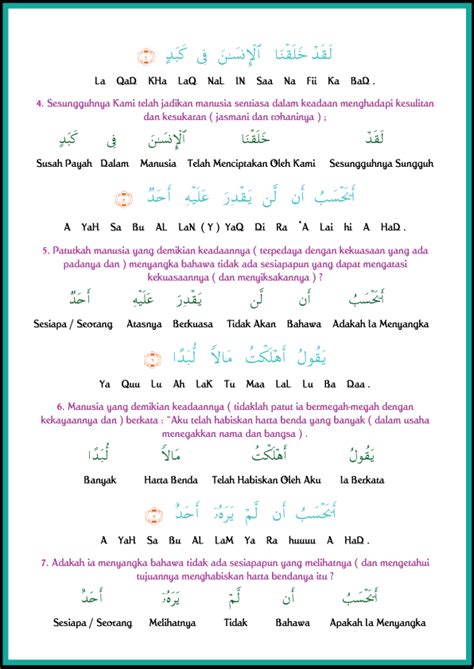 لَقَدْ خَلَقْنَا ٱلْإِنسَـٰنَ فِى كَبَدٍ ٤
La QaD KHa LaQ NaL IN Saa Na Fii Ka BaD .
4. Sesungguhnya Kami telah jadikan manusia sentiasa dalam keadaan menghadapi kesulitan
dan kesukaran ( jasmani dan rohaninya ) ;
لَقَدْ خَلَقْنَا ٱلْإِنسَـٰنَ فِى كَبَدٍ
Susah Payah Dalam Manusia Telah Menciptakan Oleh Kami Sesungguhnya Sungguh
أَيَحْسَبُ أَن لَّن يَقْدِرَ عَلَيْهِ أَحَدٌ ٥
A YaH Sa Bu AL LaN ( Y ) YaQ Di Ra 'A Lai hi A HaD .
5. Patutkah manusia yang demikian keadaannya ( terpedaya dengan kekuasaan yang ada
padanya dan ) menyangka bahawa tidak ada sesiapapun yang dapat mengatasi
kekuasaannya ( dan menyiksakannya ) ?
أَيَحْسَبُ أَن لَّن يَقْدِرَ عَلَيْهِ أَحَدٌ
Sesiapa / Seorang Atasnya Berkuasa Tidak Akan Bahawa Adakah Ia Menyangka
يَقُولُ أَهْلَكْتُ مَالًا لُّبَدًا ٦
Ya Quu Lu Ah LaK Tu Maa LaL Lu Ba Daa .
6. Manusia yang demikian keadaannya ( tidaklah patut ia bermegah-megah dengan
kekayaannya dan ) berkata : "Aku telah habiskan harta benda yang banyak ( dalam usaha
menegakkan nama dan bangsa ) .
يَقُولُ أَهْلَكْتُ مَالًا لُّبَدًا
Banyak Harta Benda Telah Habiskan Oleh Aku Ia Berkata
أَيَحْسَبُ أَن لَّمْ يَرَهُۥٓ أَحَدٌ ٧
A YaH Sa Bu AL LaM Ya Ra huuuu A HaD .
7. Adakah ia menyangka bahawa tidak ada sesiapapun yang melihatnya ( dan mengetahui
tujuannya menghabiskan harta bendanya itu ?
أَيَحْسَبُ أَن لَّمْ يَرَهُۥٓ أَحَدٌ
Sesiapa / Seorang Melihatnya Tidak Bahawa Apakah Ia Menyangka